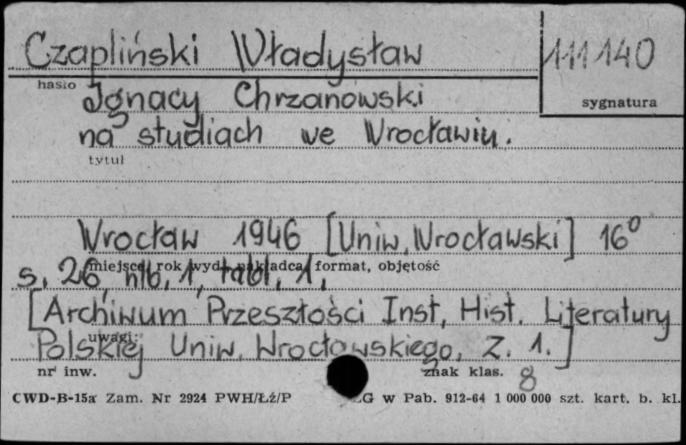 Czapliński Władysław 111140
hasło
sygnatura
Ignacy Chrzanowski
na studiach we Wrocławiu.
tytuł
Wrocław 1946 [Uniw. Wrocławski] 16°
miejsce, rok wyd., nakładca, format, objętość
s. 26, nlb. 1, tabl. 1.
[Archiwum Przeszłości Inst. Hist. Literatury
uwagi:
Polskiej Uniw. Wrocławskiego. Z. 1.]
nr inw. znak klas. 8
CWD-B-15a Zam. Nr 2924 PWH/Łź/P ZG w Pab. 912-64 1 000 000 szt. kart. b. kl.